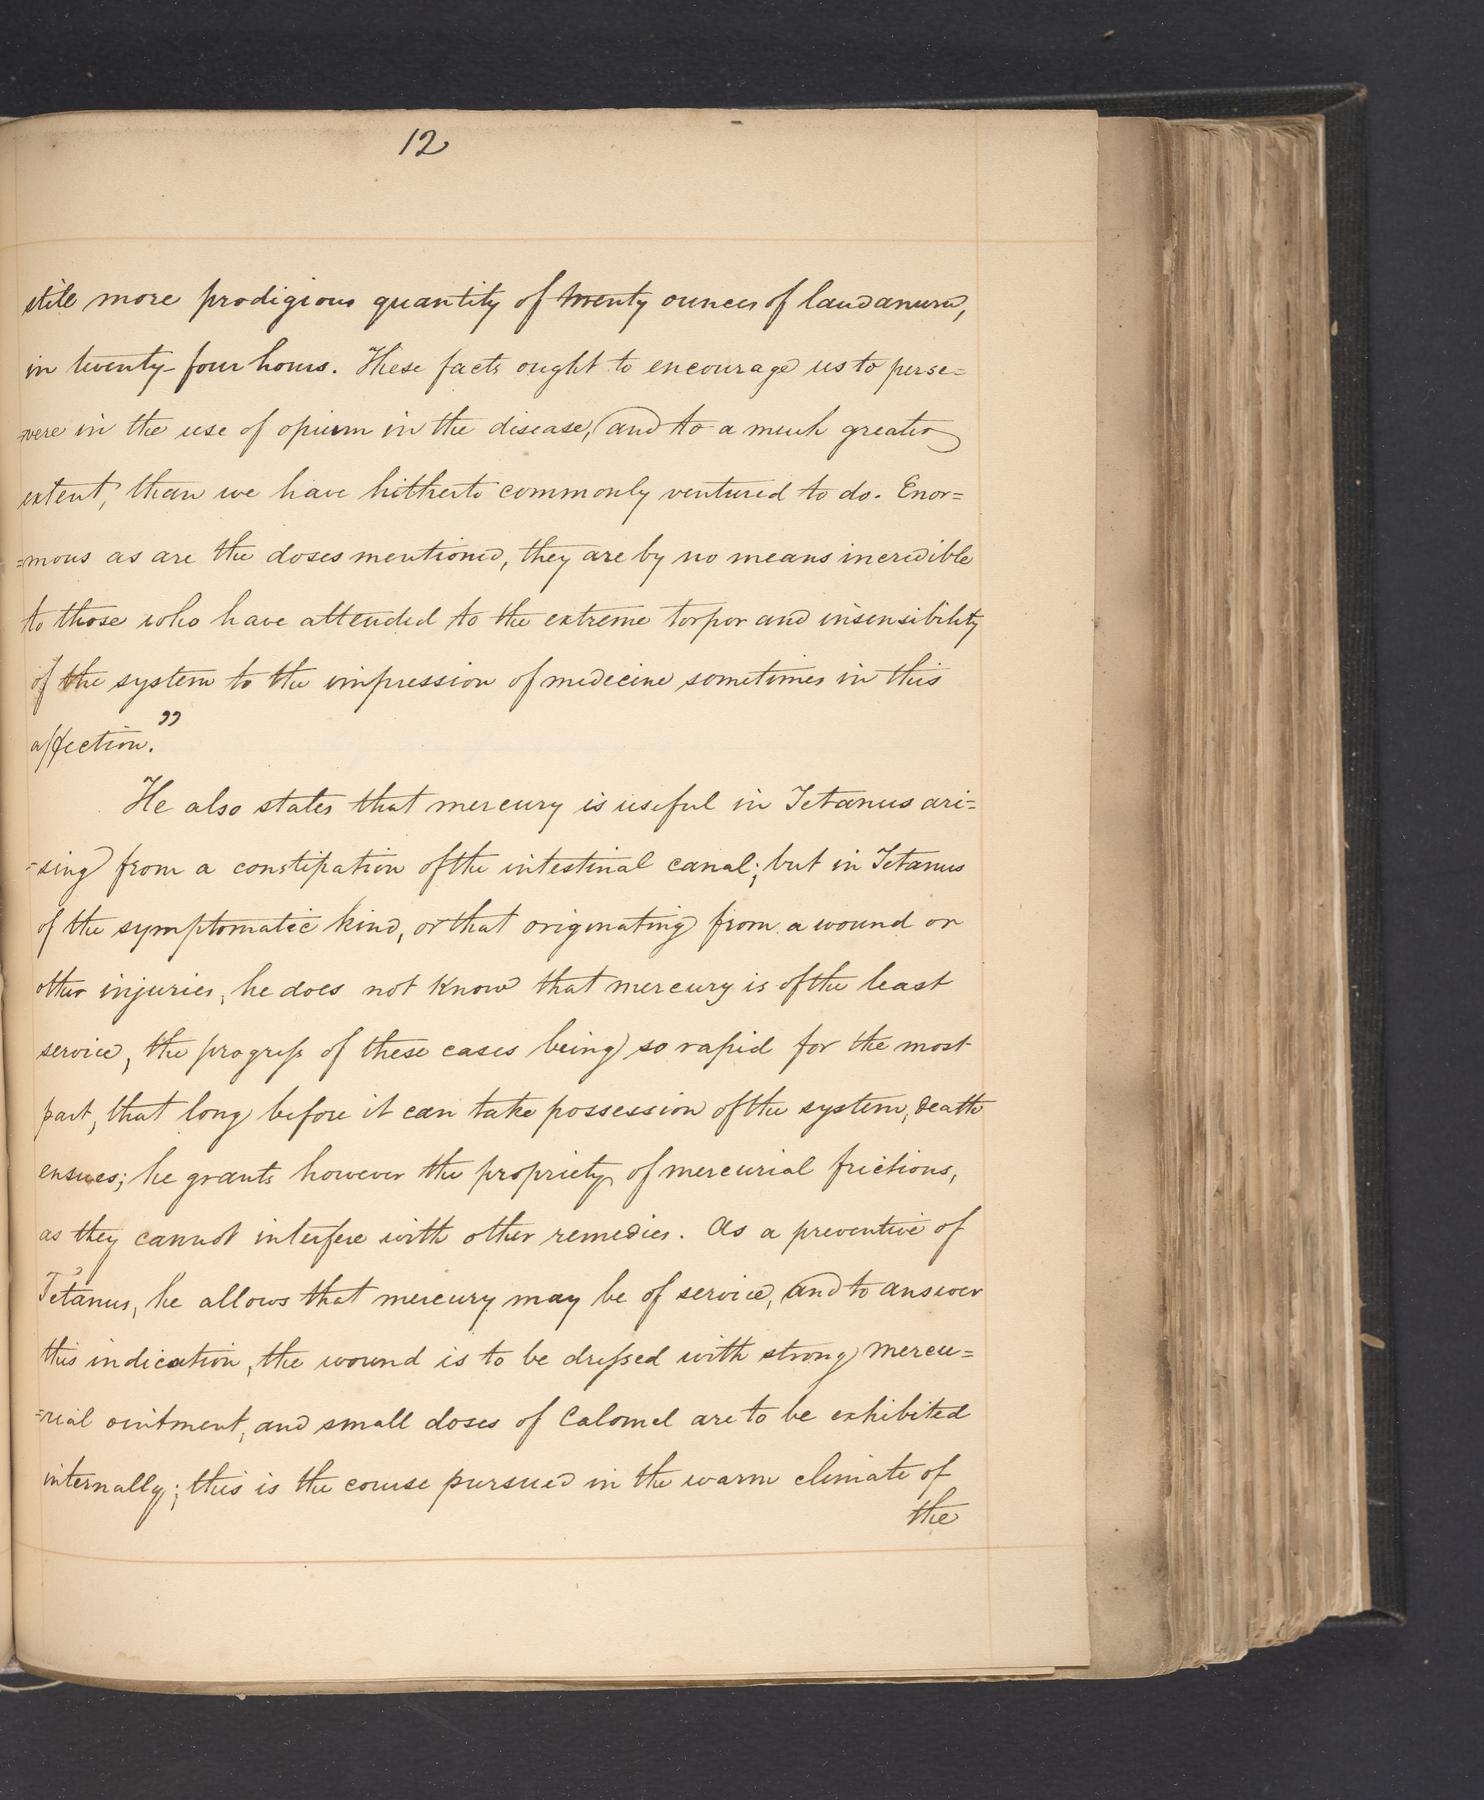 12
still more prodigious quantity of twenty ounces of laudanum,
in twenty-four hours. These facts ought to encourage us to perse=
=vere in the use of opium in the disease, (and to a much greater
extent, than we have hitherto commonly ventured to do. Enor=
=mous as are the doses mentioned, they are by no means incredible
to those who have attended to the extreme torpor and insensibility
of the system to the impression of medecine sometimes in this
affection.”
He also states that mercury is useful in Tetanus ari=
=sing from a constipation of the intestinal canal; but in Tetanus
of the symptomatic kind, or that originating from a wound or
other injuries, he does not know that mercury is of the least
service, the progress of these cases being so rapid for the most
part, that long before it can take possession of the system, death
ensues; he grants however the propriety of mercurial frictions,
as they cannot interfere with other remedies. As a preventive of
Tetanus, he allows that mercury may be of service, and to answer
this indication, the wound is to be dressed with strong mercu=
=rial ointment, and small doses of Calomel are to be exhibited
internally; this is the course pursued in the warm climate of
the